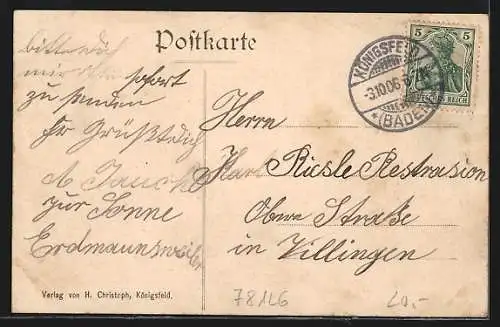 Postkarte
bitte dich
mir sofort
zu senden
Es Grüßt dich
A Jauch
zur Sonne
Erdmannsweiler
Verlag von H. Christoph, Königsfeld.
KÖNIGSFELD
-3.10.06.
*(BADEN)
5 5
DEUTSCHES REICH
Herrn
Karl Riesle Restrasion
Obere Straße
in Villingen
78126
20.-